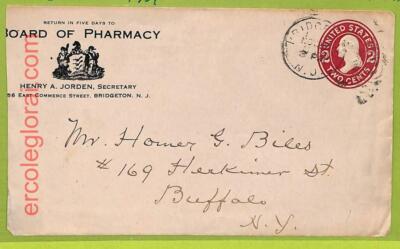 RETURN IN FIVE DAYS TO
BOARD OF PHARMACY
HENRY A. JORDEN, SECRETARY
EAST COMMERCE STREET, BRIDGETON, N. J.
UNITED STATES
2 2
TWO CENTS
N.J.
Mr. Homer G. Biles
#169 Herkimer St.
Buffalo
N.Y.
ercolegloria.com